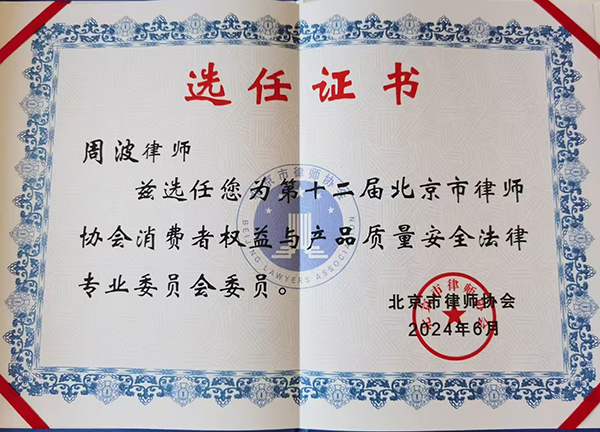 选任证书
周波律师
兹选任您为第十二届北京市律师
协会消费者权益与产品质量安全法律
专业委员会委员。
北京市律师协会
2024年6月
北京市律师协会
BEIJING LAWYERS ASSOCIATION
北京市律师协会